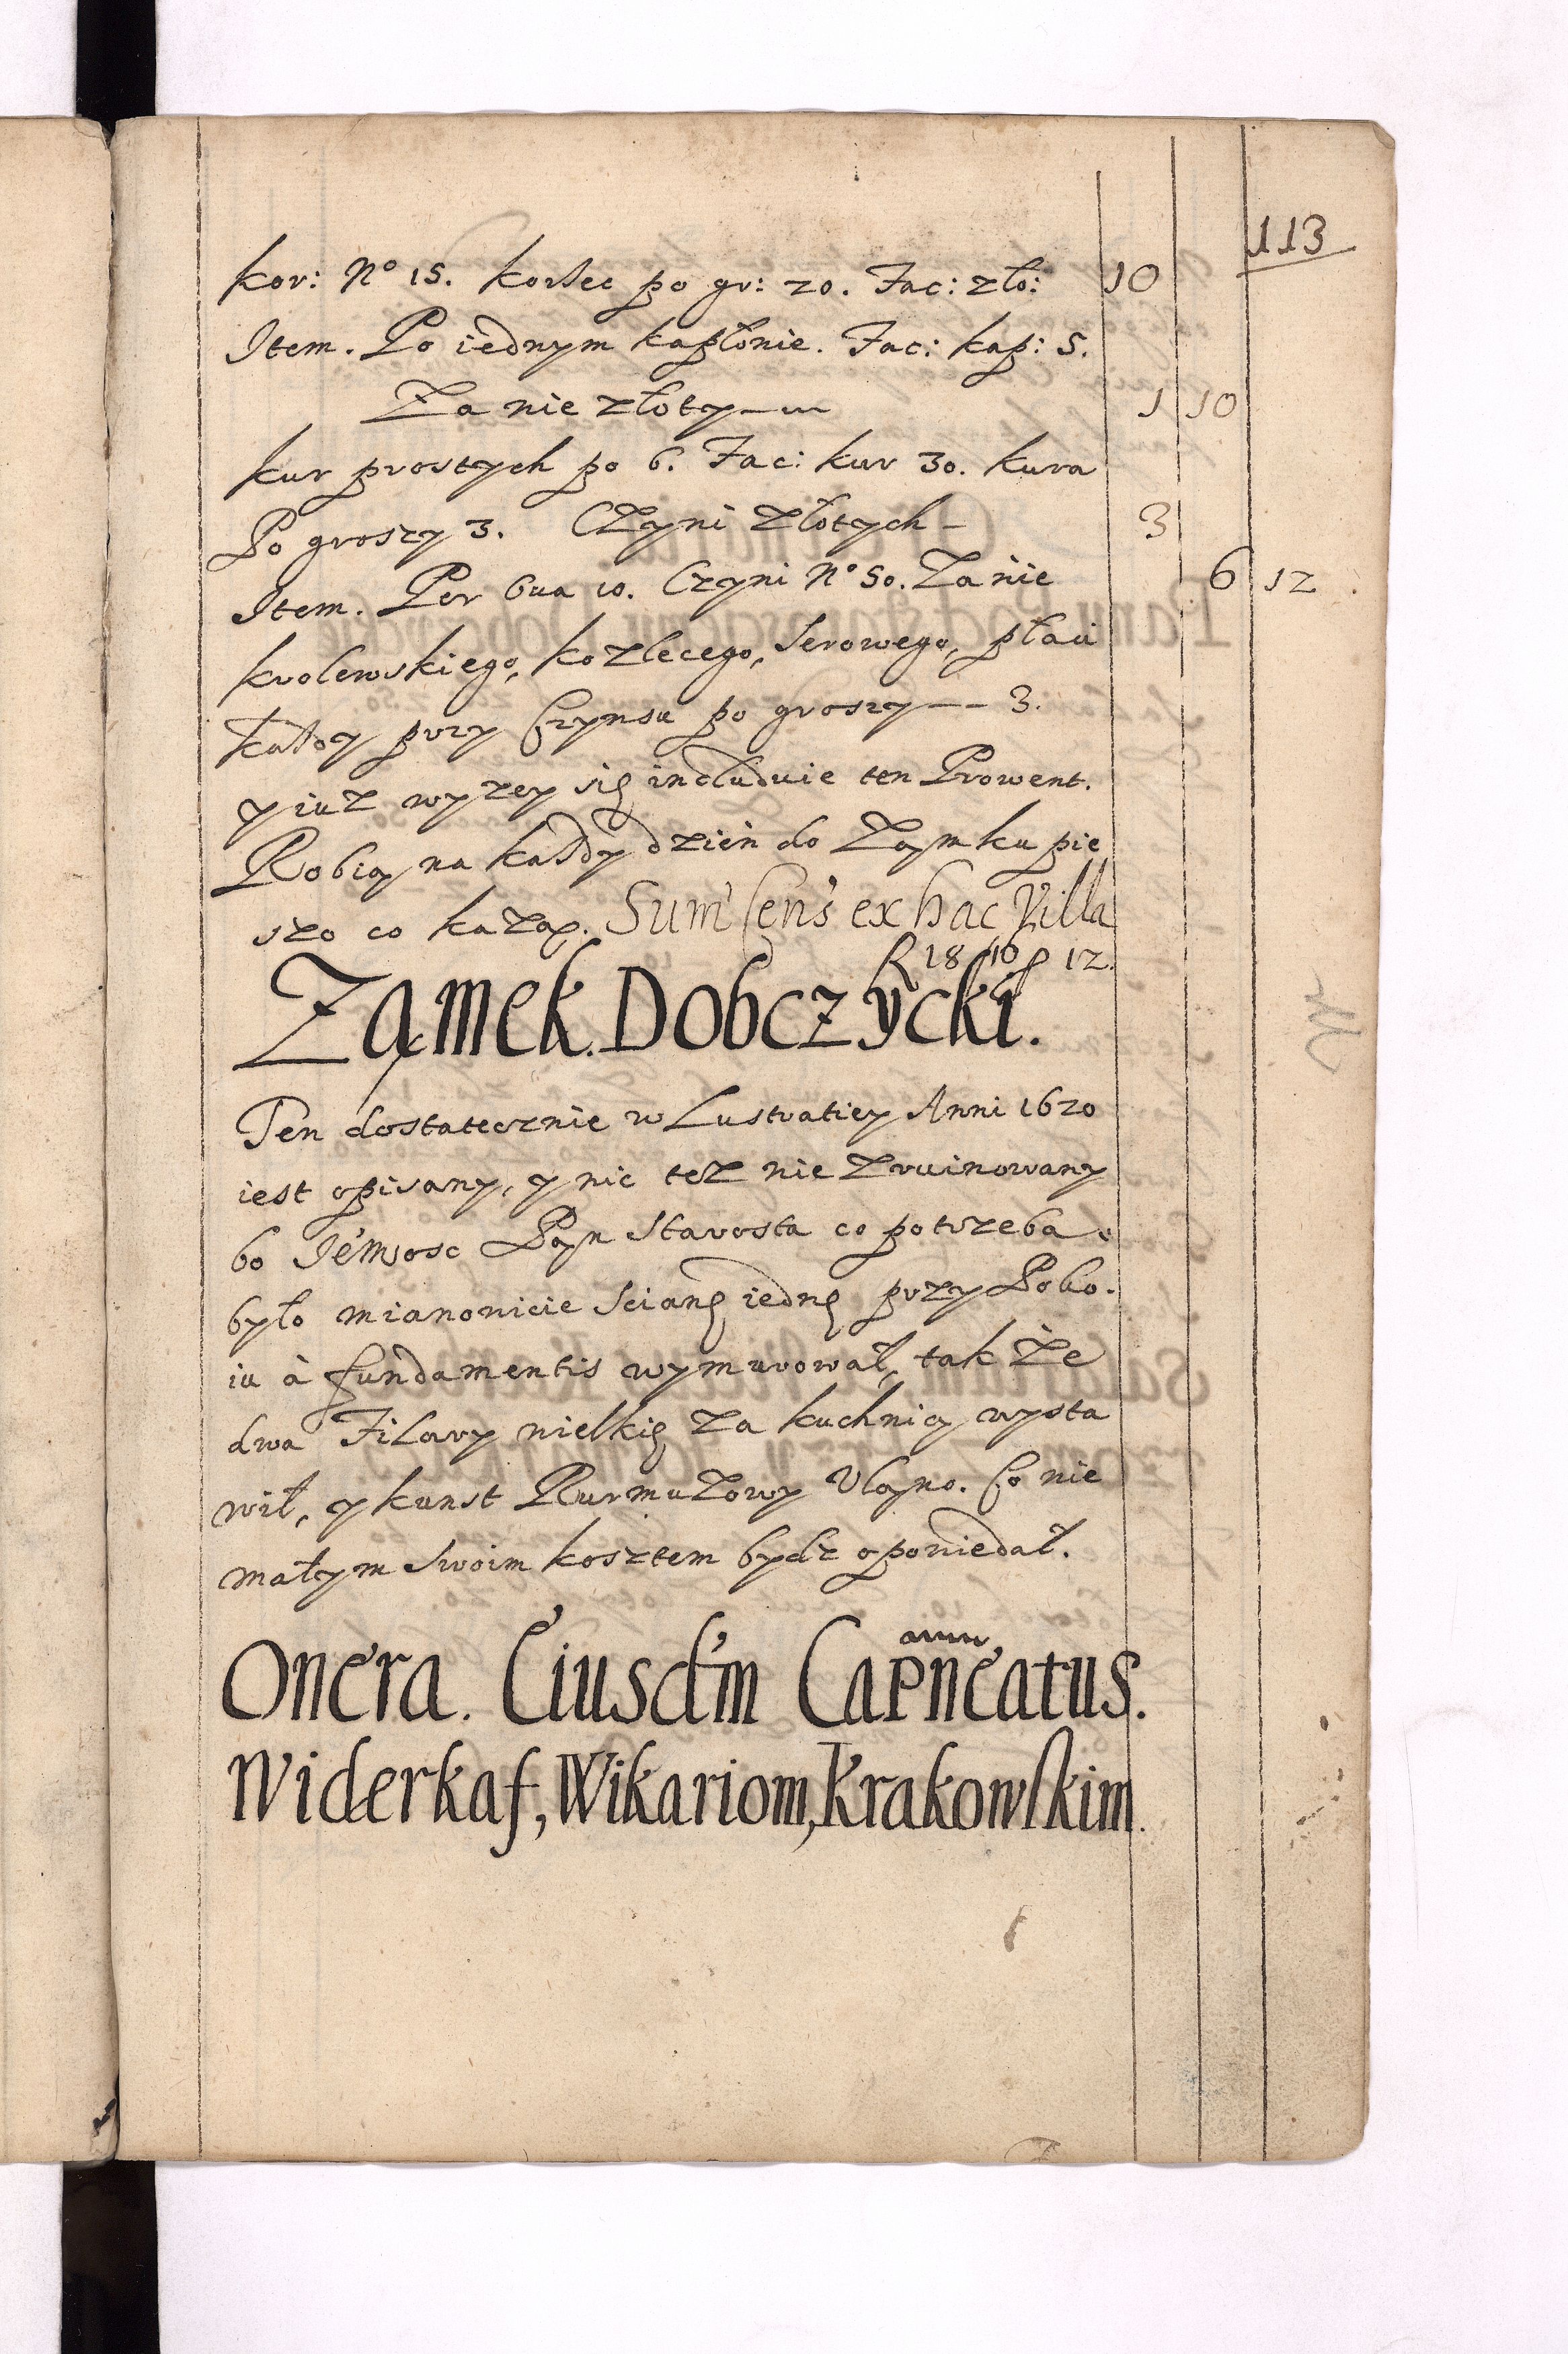 113
kor: No 15. korzec po gr: 20. Fac: zło: 10
Item. Po iednym kapłonie. Fac: kap: 5.
Za nie złoty 1 10
kur prostych po 6. Fac: kur 30. kura
Po groszy 3. Czyni złotych 3
Item. Per Oua 10. Czyni No 50. Za nie 6 12
krolewskiego, kozlecego, Serowego, płaci
każdy przy Czynsu po groszy 3.
y iuz wyzey się includuie ten Prowent.
Robią na każdy dzień do Zamku pie
szo co każą. Sum Cens ex hac Villa
R 18 / 10 / 12.
Zamek. Dobczycki.
Ten dostatecznie w Lustratiey Anni 1620
iest opisany, y nic tez nie zruinowany
bo Jemsosc Pan Starosta co potrzeba
było mianowicie Scianę iednę przy Poko.
iu à fundamentis wymurował, tak że
dwa Filary wielkię za kuchnią wysta
wił, y kunst Rurmuzowy Co nie
małym Swoim kosztem bydz opowiedał.
Onera. Eiusdm Capneatus.
Widerkaf, Wikariom, Krakowskim.